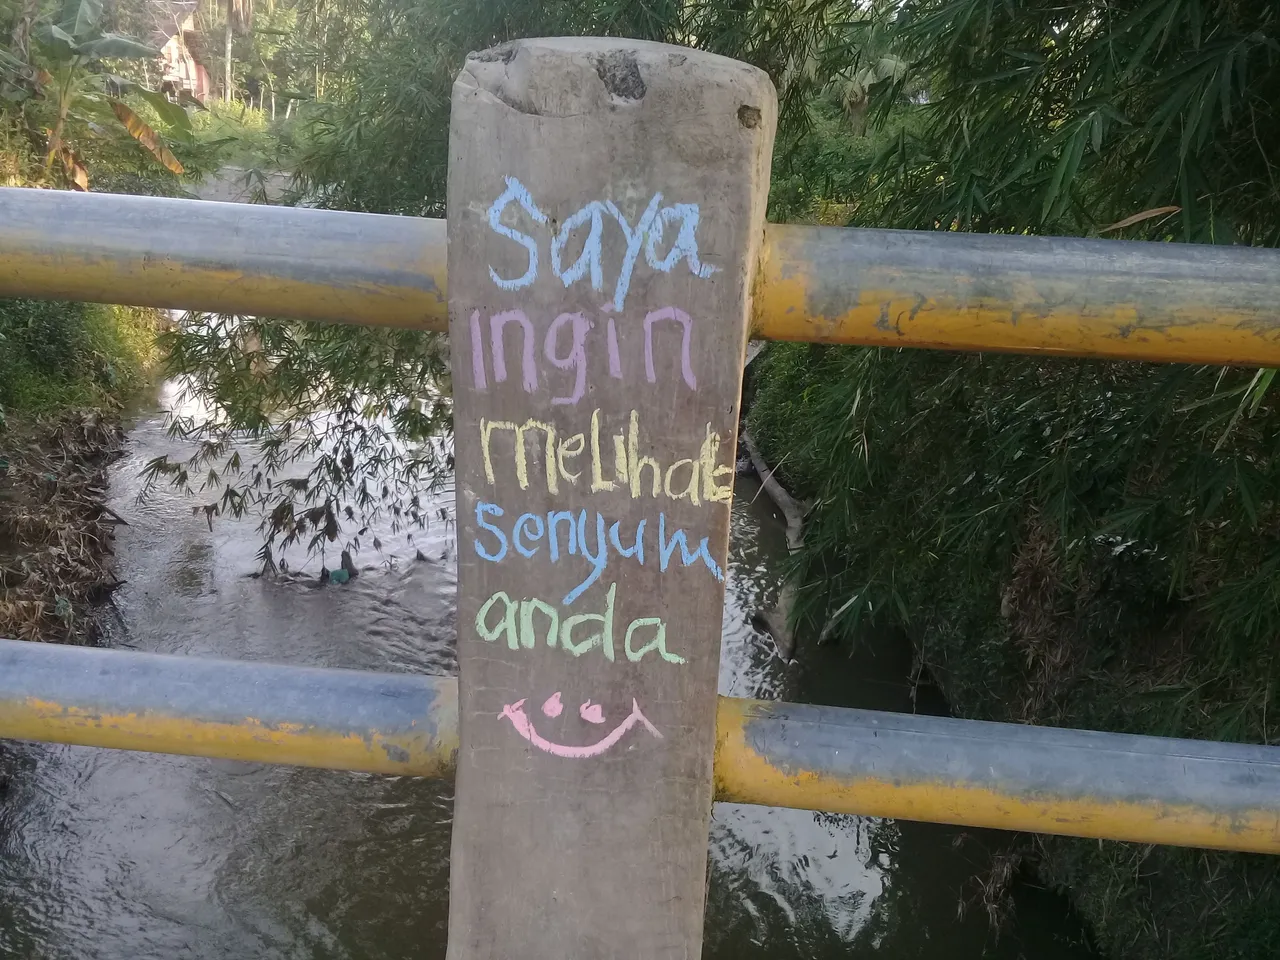 Saya
Ingin
melihat
senyum
anda